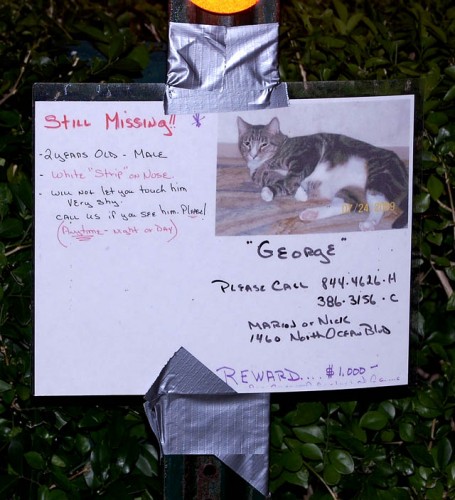 Still Missing!! *
- 2 years old - Male
- White "Strip" on Nose.
- will not let you touch him
Very shy.
Call us if you see him. Please!
(Anytime - night or day)
07/24/
"George"
Please Call 844-4626-H
386-3156-C
Marion or Nick
1460 North Ocean Blvd
Reward.... $1,000-